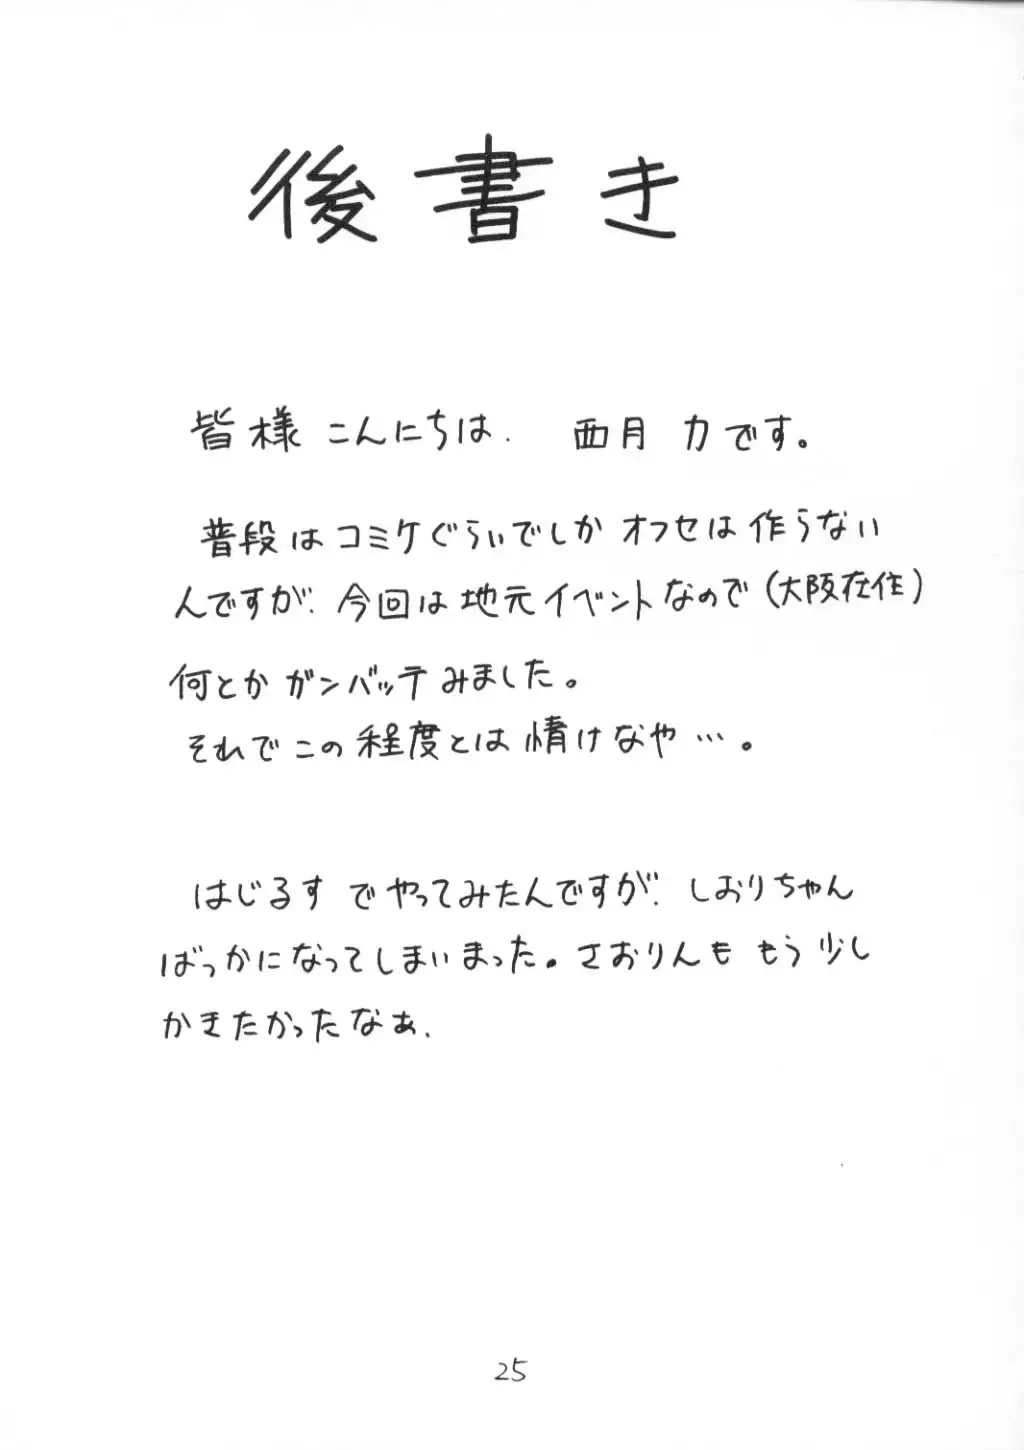 後書き
皆様 こんにちは. 西月 力です。
普段はコミケぐらいでしかオフセは作らない
んですが. 今回は地元イベントなので(大阪在住)
何とかガンバッテみました。
それでこの程度とは情けなや…。
はじるすでやってみたんですが. しおりちゃん
ばっかになってしまいまった。さおりんももう少し
かきたかったなぁ.
25